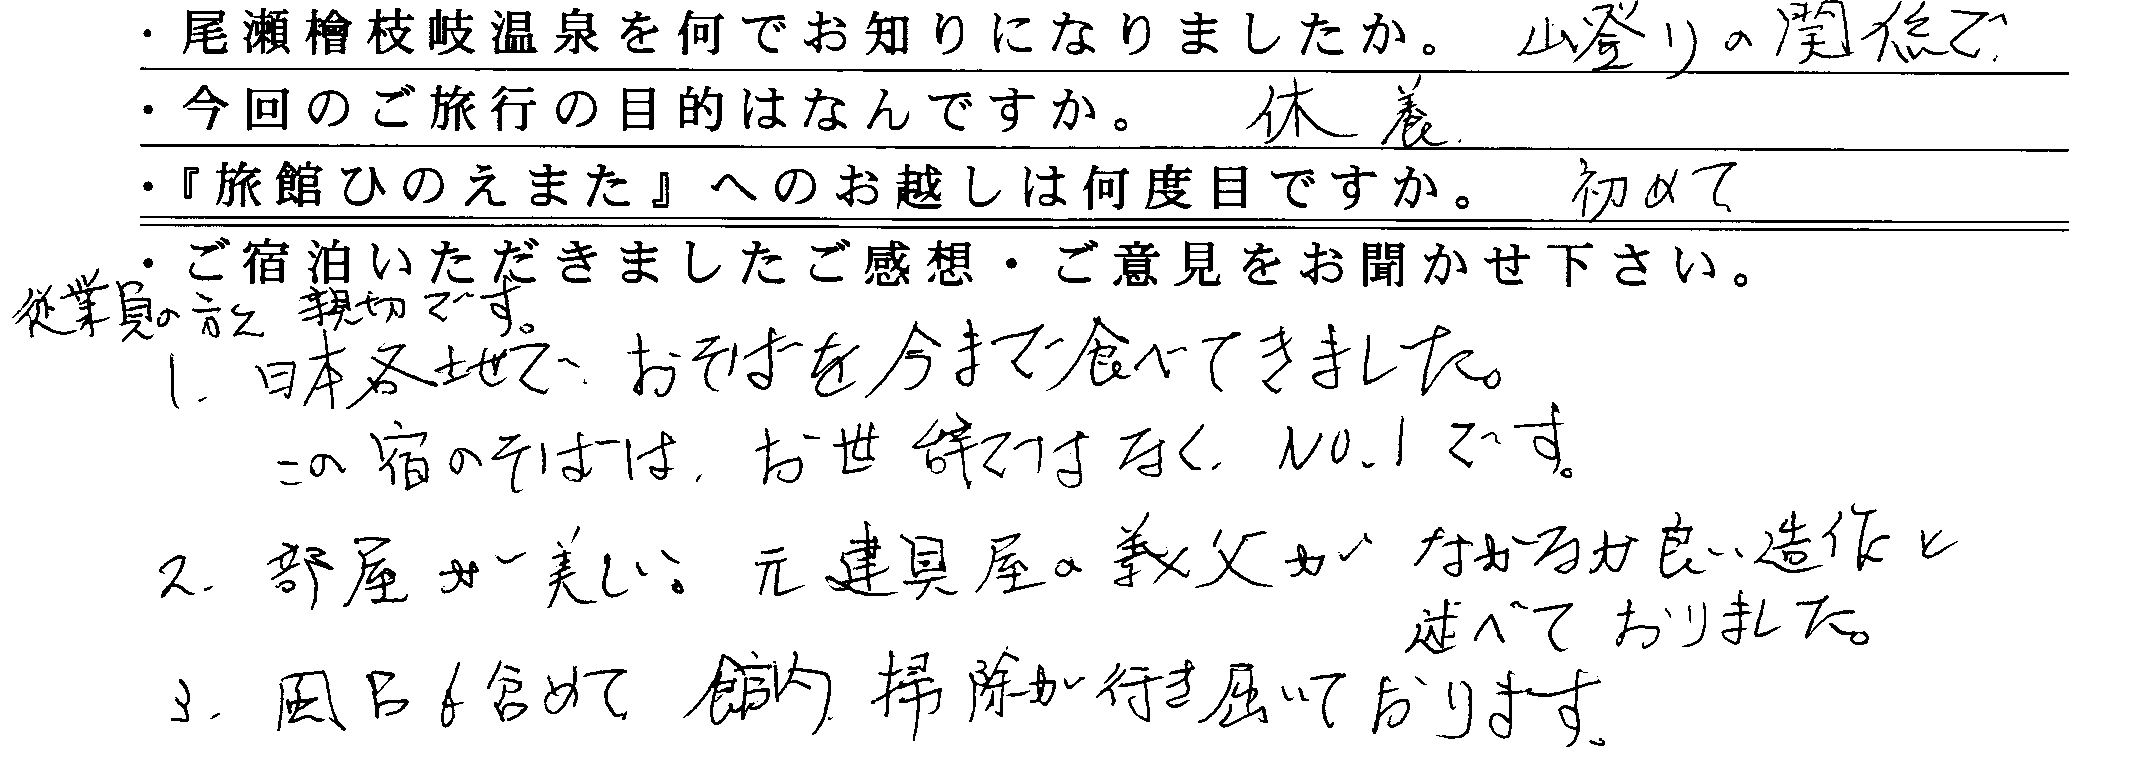 ・尾瀬檜枝岐温泉を何でお知りになりましたか。 山登りの関係で
・今回のご旅行の目的はなんですか。 休養
・『旅館ひのえまた』へのお越しは何度目ですか。 初めて
・ご宿泊いただきましたご感想・ご意見をお聞かせ下さい。
従業員の方も親切です。
1. 日本各地で、おそばを今まで食べてきました。
この宿のそばは、お世辞ではなく、NO.1です。
2. 部屋が美しい。元建具屋の義父がなかなか良い造作と
述べておりました。
3. 風呂も含めて館内掃除が行き届いております。